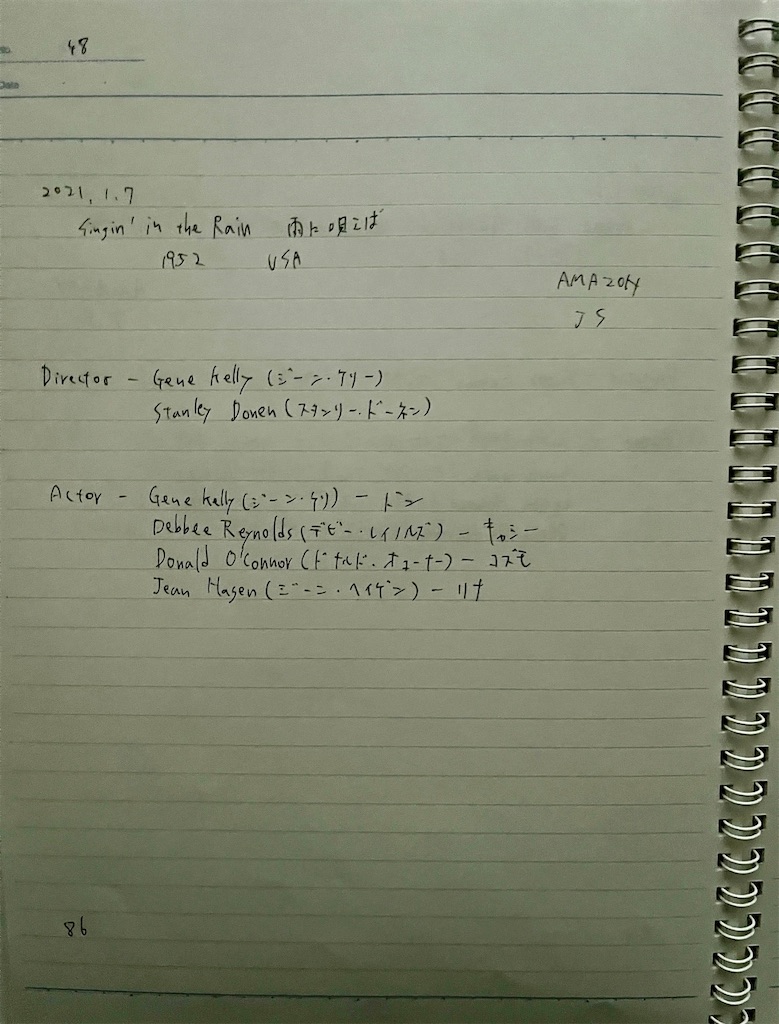 No. 48
Date
2021.1.7
Singin' in the Rain 雨に唄えば
1952 USA
AMAZON
JS
Director - Gene Kelly (ジーン・ケリー)
Stanley Donen (スタンリー・ドーネン)
Actor - Gene Kelly (ジーン・ケリ) - ドン
Debbee Reynolds (デビー・レイノルズ) - キャシー
Donald O'Connor (ドナルド・オコーナー) - コズモ
Jean Hagen (ジーン・ヘイゲン) - リナ
86